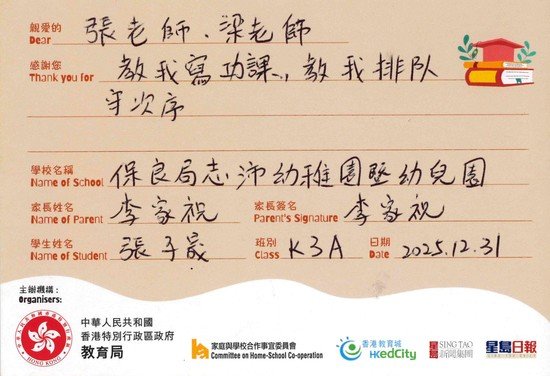 親愛的 張老師、梁老師
Dear
感謝您 教我寫功課,教我排队
Thank you for
守次序
學校名稱 保良局志沛幼稚園暨幼兒園
Name of School
家長姓名 李家祝 家長簽名 李家祝
Name of Parent Parent's Signature
學生姓名 張子晟 班別 K3A 日期 2025.12.31
Name of Student Class Date
主辦機構:
Organisers:
中華人民共和國
香港特別行政區政府
教育局
家庭與學校合作事宜委員會
Committee on Home-School Co-operation
香港教育城
HKedCity
星島 SING TAO
新聞集團
星島日報
HONG KONG